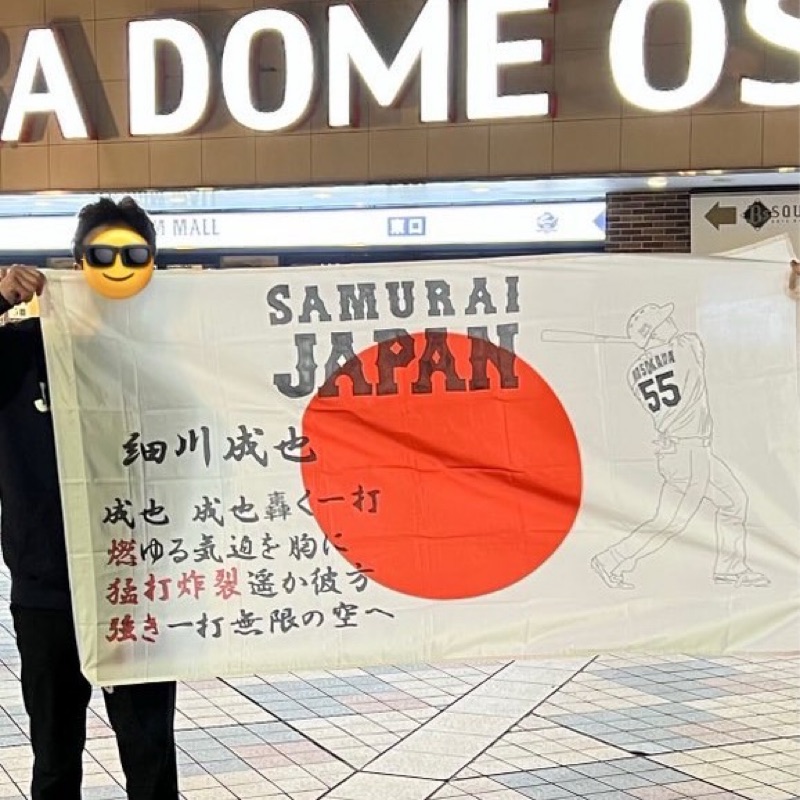 A DOME OS
M MALL
東口
Bs SQU
SAMURAI
JAPAN
HOSOKAWA
55
細川成也
成也 成也轟く一打
燃ゆる気迫を胸に
猛打炸裂遥か彼方
強き一打無限の空へ